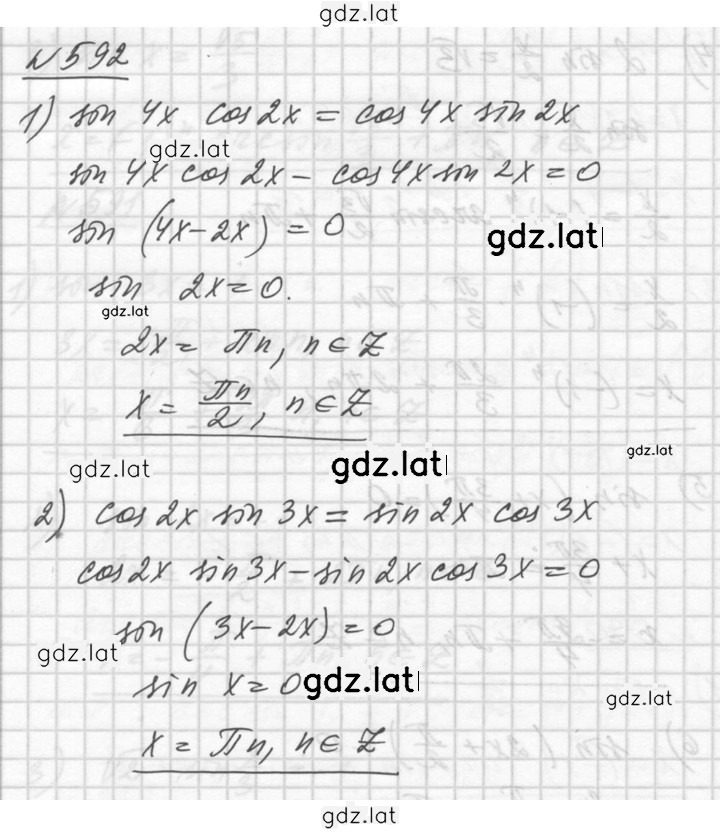 gdz.lat
№592
1) sin 4x cos 2x = cos 4x sin 2x
gdz.lat
sin 4x cos 2x − cos 4x sin 2x = 0
sin (4x−2x) = 0
gdz.lat
sin 2x = 0.
gdz.lat
2x = πn, n ∈ Z
x = πn/2, n ∈ Z
gdz.lat
gdz.lat
gdz.lat
2) cos 2x sin 3x = sin 2x cos 3x
cos 2x sin 3x − sin 2x cos 3x = 0
sin (3x − 2x) = 0
gdz.lat
sin x = 0
gdz.lat
gdz.lat
x = πn, n ∈ Z
gdz.lat